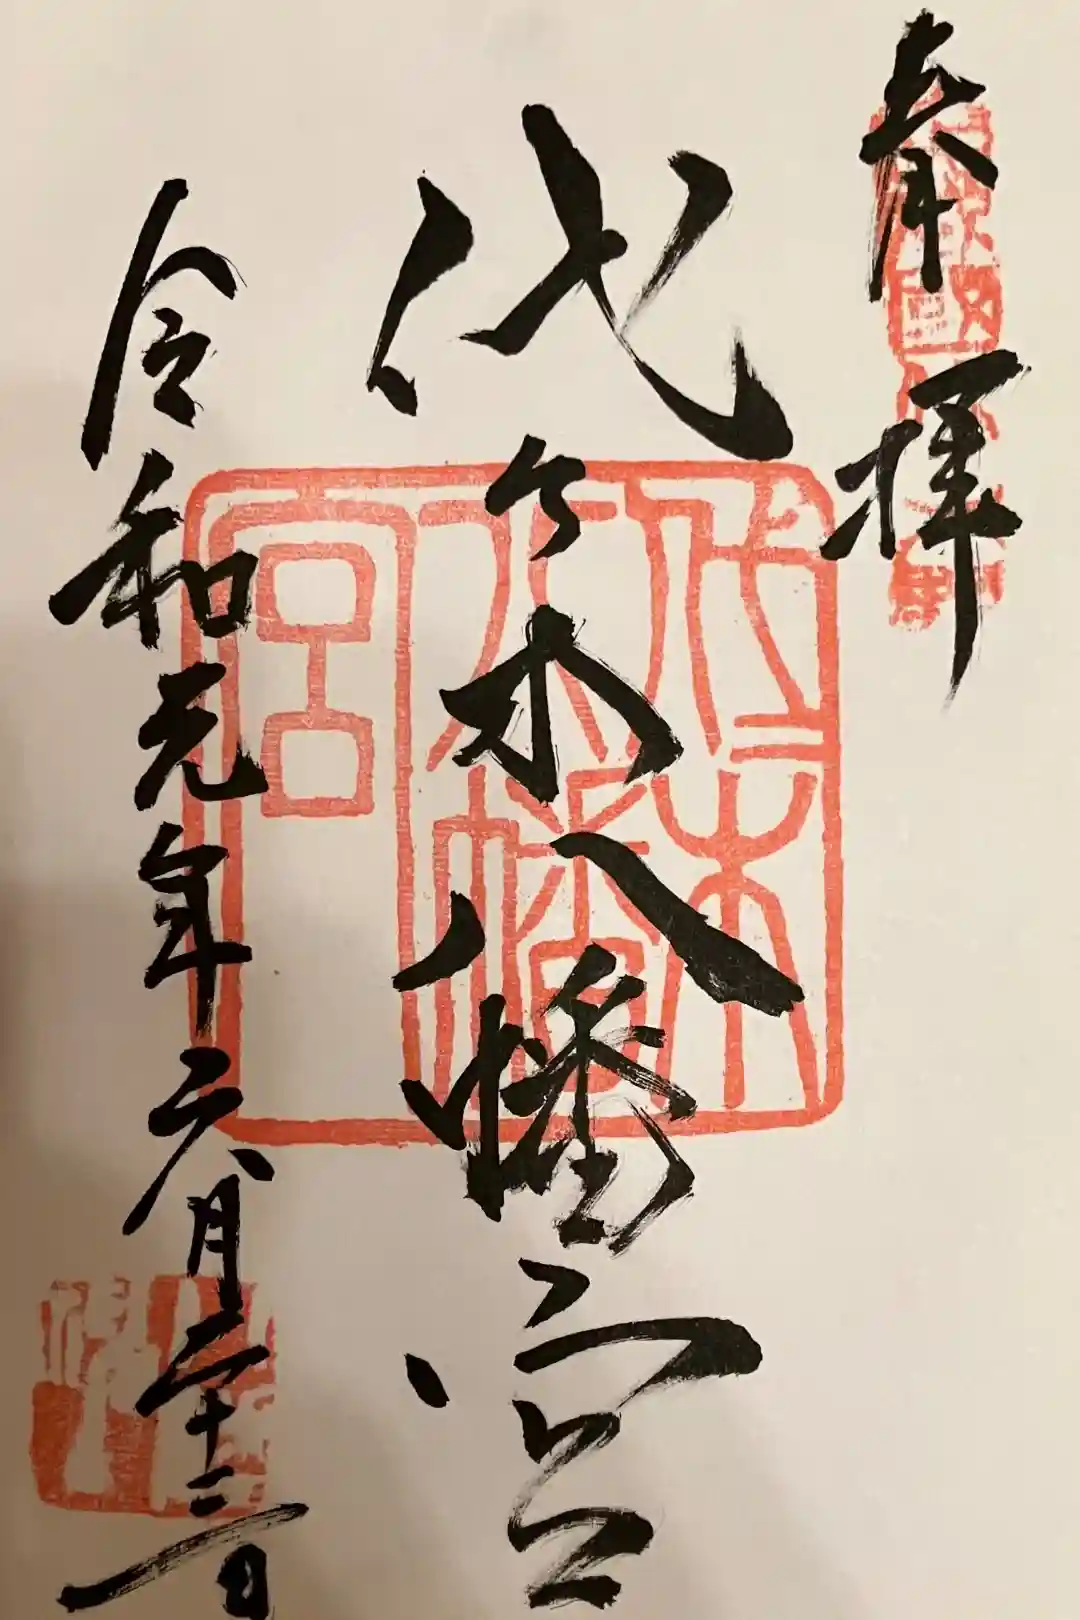 奉拝
代々木八幡宮
代木
八幡
宮
令和元年六月二十三日